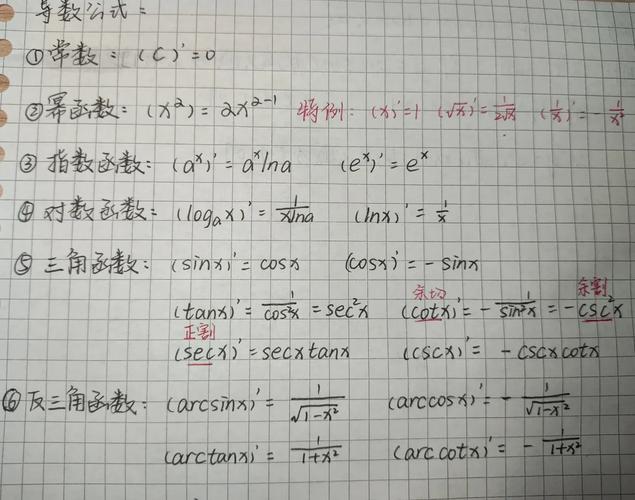 导数公式：
①常数：(C)'=0
②幂函数：(x²)=2x²⁻¹ 特例：(x)'=1 (√x)'=1/2√x (1/x)'=-1/x²
③指数函数：(aˣ)'=aˣlna (eˣ)'=eˣ
④对数函数：(logₐx)'=1/xlna (lnx)'=1/x
⑤三角函数：(sinx)'=cosx (cosx)'=-sinx
余切 余割
(tanx)'=1/cos²x=sec²x (cotx)'=-1/sin²x=-csc²x
正割
(secx)'=secxtanx (cscx)'=-cscxcotx
⑥反三角函数：(arcsinx)'=1/√1-x² (arccosx)'=-1/√1-x²
(arctanx)'=1/1+x² (arccotx)'=-1/1+x²